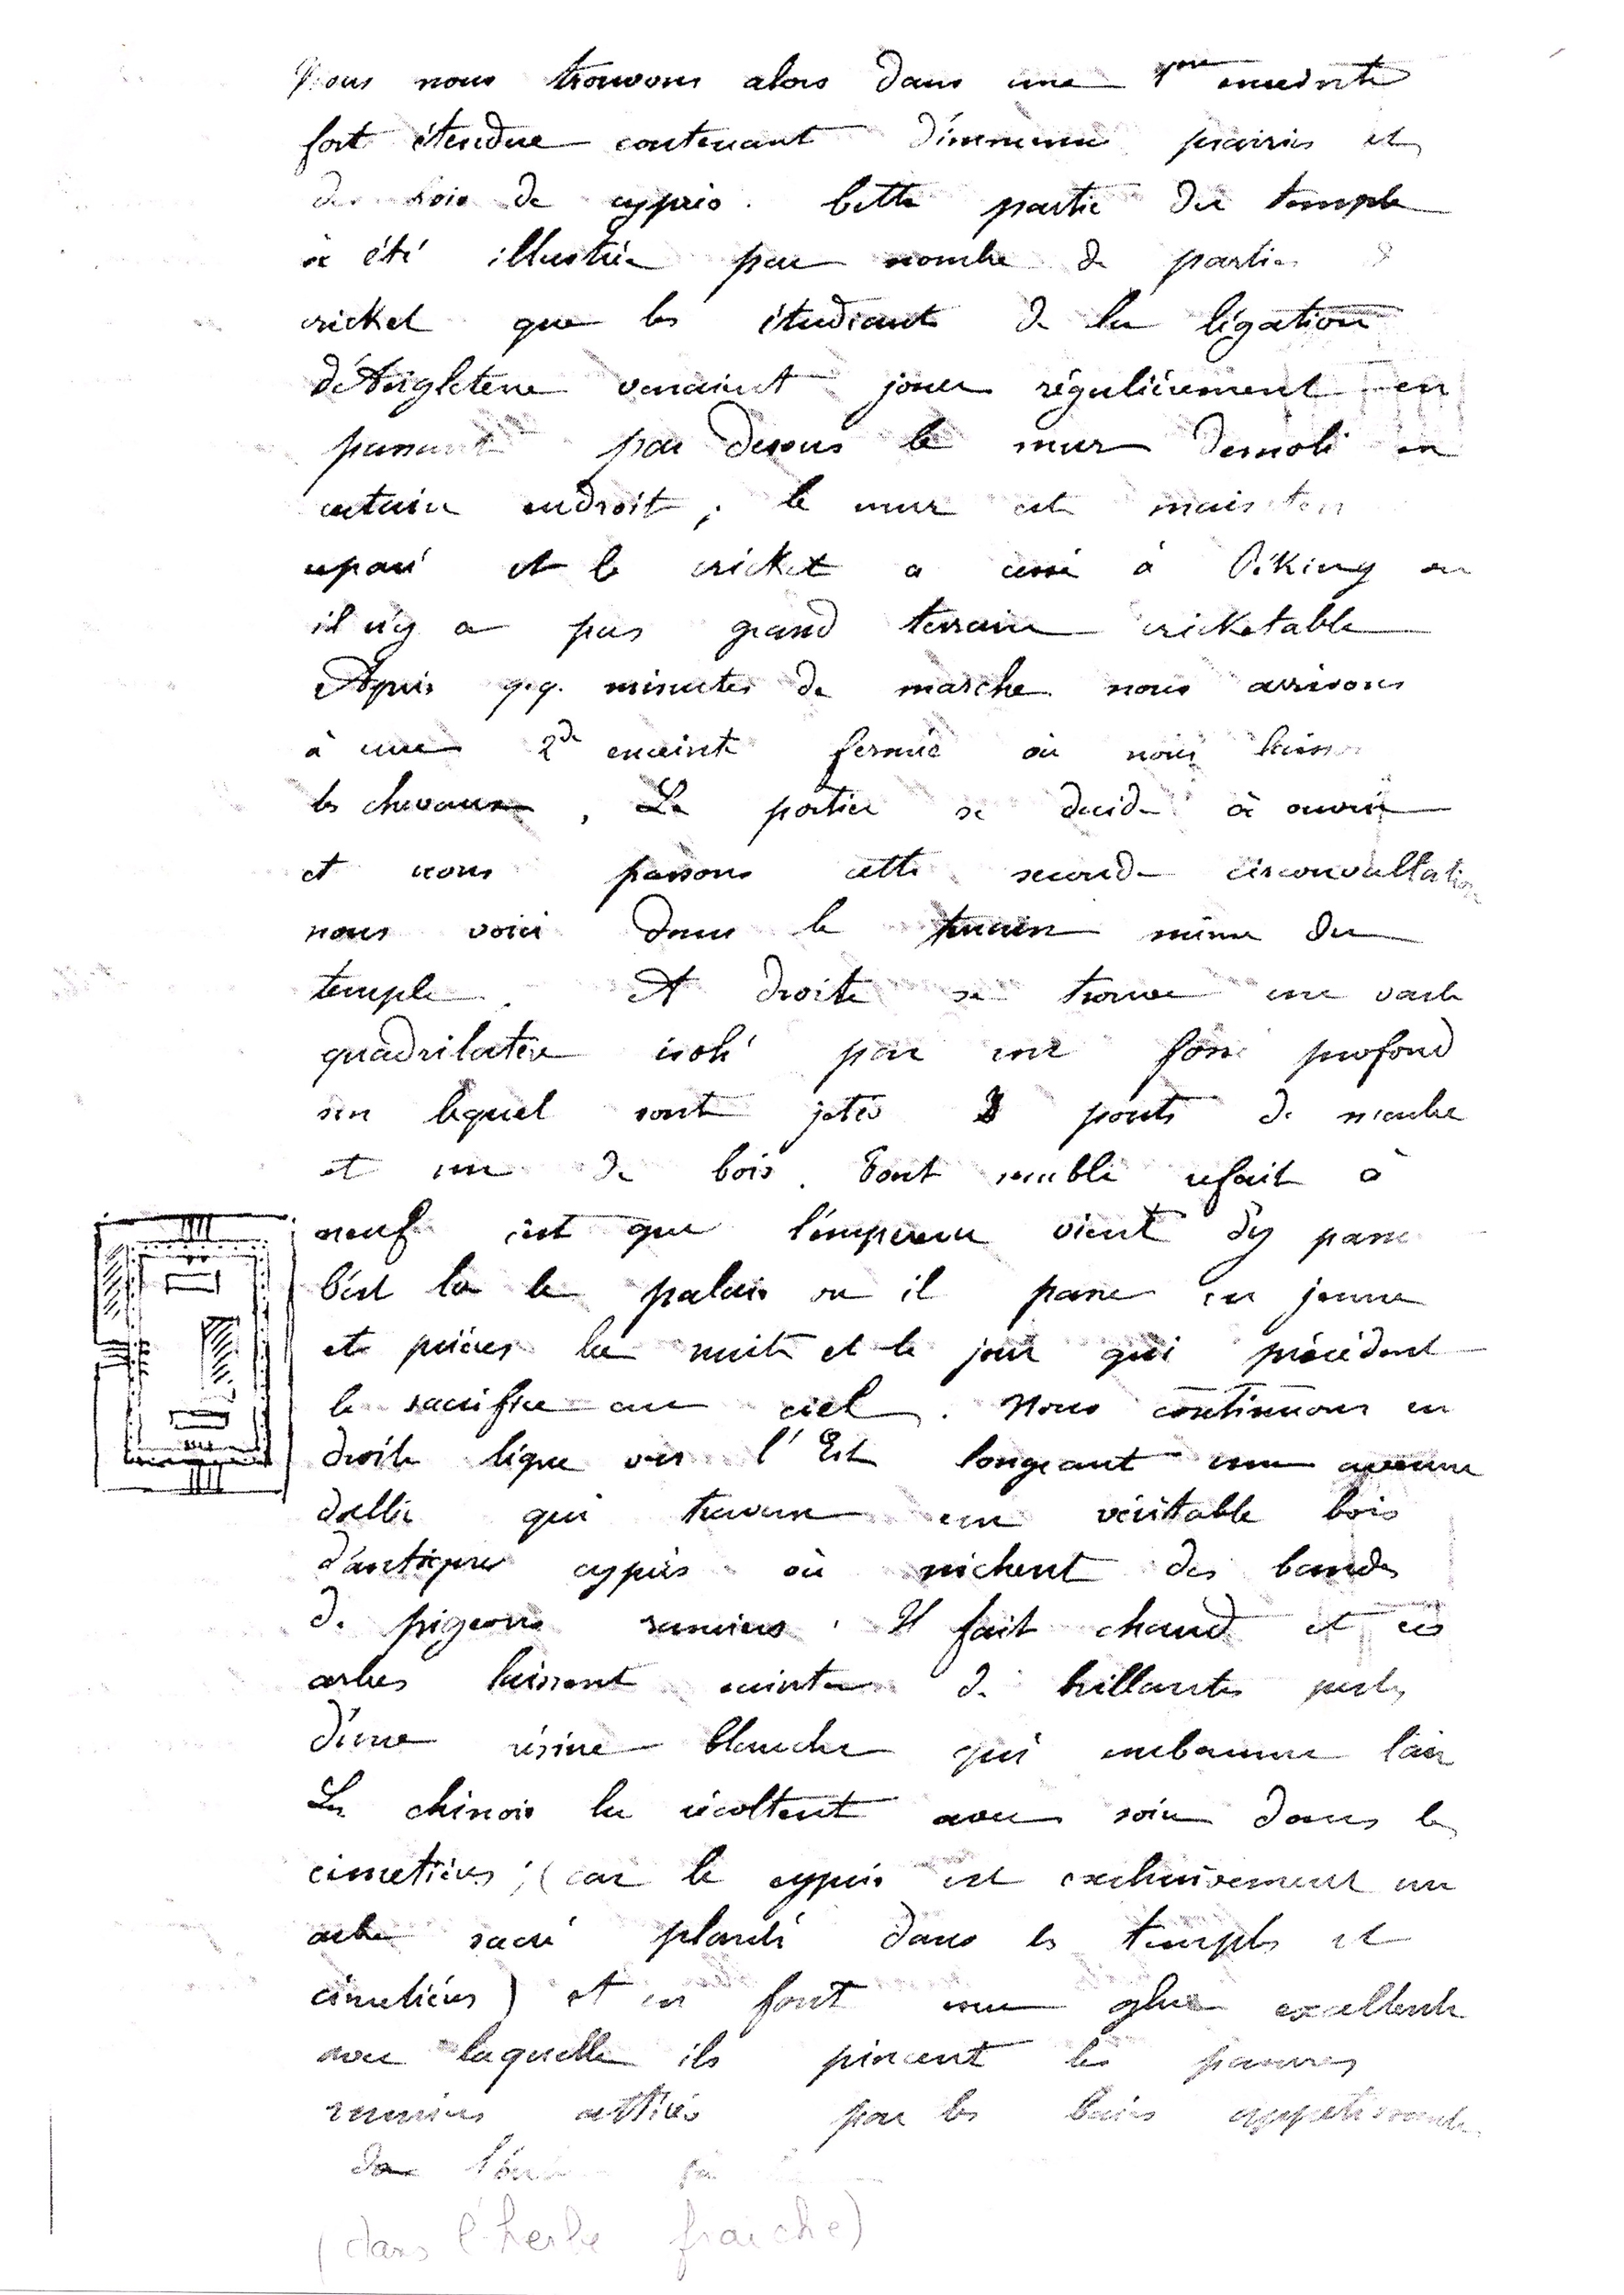 Nous nous trouvons alors dans une 1ère enceinte
fort étendue contenant d'immenses prairies et
des bois de cyprès. Cette partie du temple
a été illustrée par nombre de parties d
cricket que les étudiants de la légation
d'Angleterre venaient jouer régulièrement en
passant par dessus le mur démoli en
certain endroit ; le mur est mainten
réparé et le cricket a cessé à Péking ou
il n'y a pas grand terrain cricketable
Après q.q. minutes de marche nous arrivons
à une 2de enceinte fermée où nous laisso
les chevaux, Le portier se décide à ouvrir
et nous passons cette seconde circonvallation
nous voici dans le terrain même du
temple. A droite se trouve un vaste
quadrilatère isolé par un fossé profond
sur lequel sont jetés 3 ponts de marbre
et un de bois. Tout semble refait à
neuf c'est que l'empereur vient d'y passer
C'est la le palais ou il passe en jeune
et prières la nuit et le jour qui précèdent
le sacrifice au ciel. Nous continuons en
droite ligne vers l'Est longeant une avenue
dallée qui traverse un véritable bois
d'antiques cyprès où nichent des bandes
de pigeons ramiers. Il fait chaud et ces
arbres laissent suinter de brillantes perles
d'une résine blanche qui embaume l'air
Les chinois la récoltent avec soin dans les
cimetières ; (car le cyprès est exclusivement un
arbre sacré planté dans les temples et
cimetières) et en font une glue excellente
avec laquelle ils pincent les pauvres
ramiers attirés par les baies appétissantes
dans l'her
(dans l'herbe fraiche)